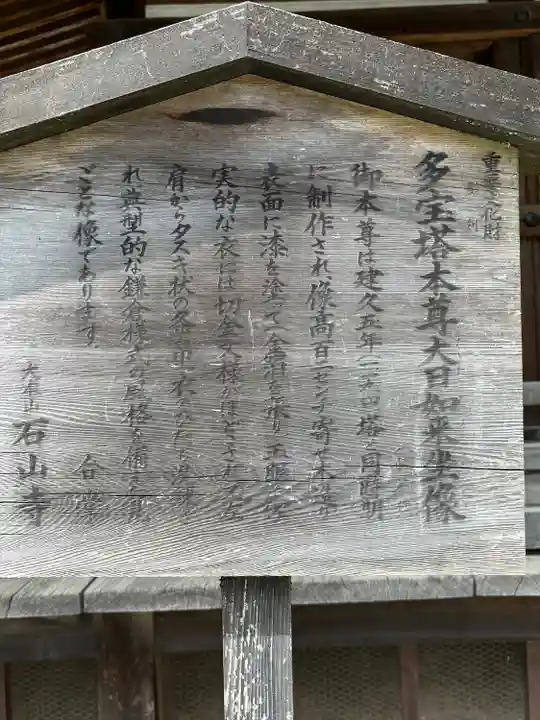 重要文化財
多宝塔本尊大日如来坐像
御本尊は建久五年(一一九四)塔と同時期
に制作され像高百二センチ寄せ木造り
表面に漆を塗って金箔を張り玉眼
実的な衣には切金文様がほどこされ左
肩からタスキ状の条帛
れ典型的な鎌倉様式の風格を備えた
ごとな像であります。
合掌
石山寺